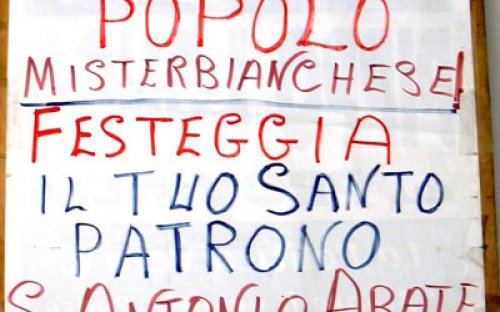 POPOLO
MISTERBIANCHESE!
FESTEGGIA
IL TUO SANTO
PATRONO
S. ANTONIO ABATE